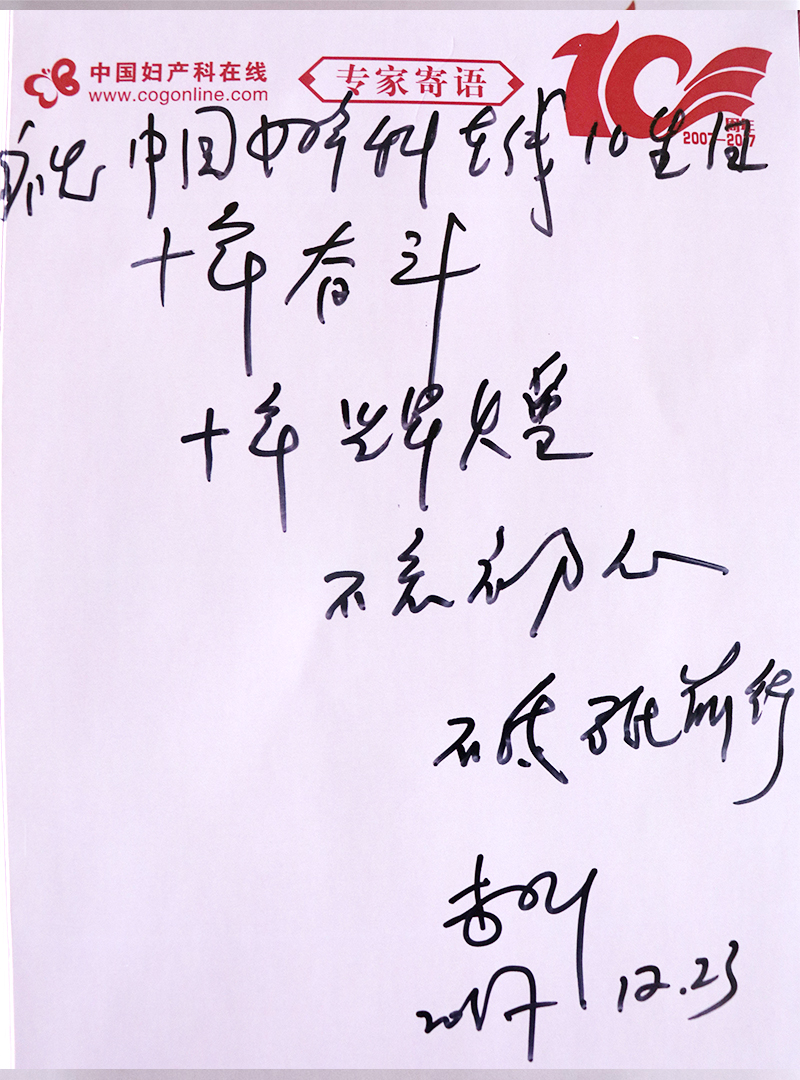 中国妇产科在线
www.cogonline.com
专家寄语
10
周年
2007—2017
祝中国妇产科在线10生日
十年奋斗
十年辉煌
不忘初心
砥砺前行
2017.12.23